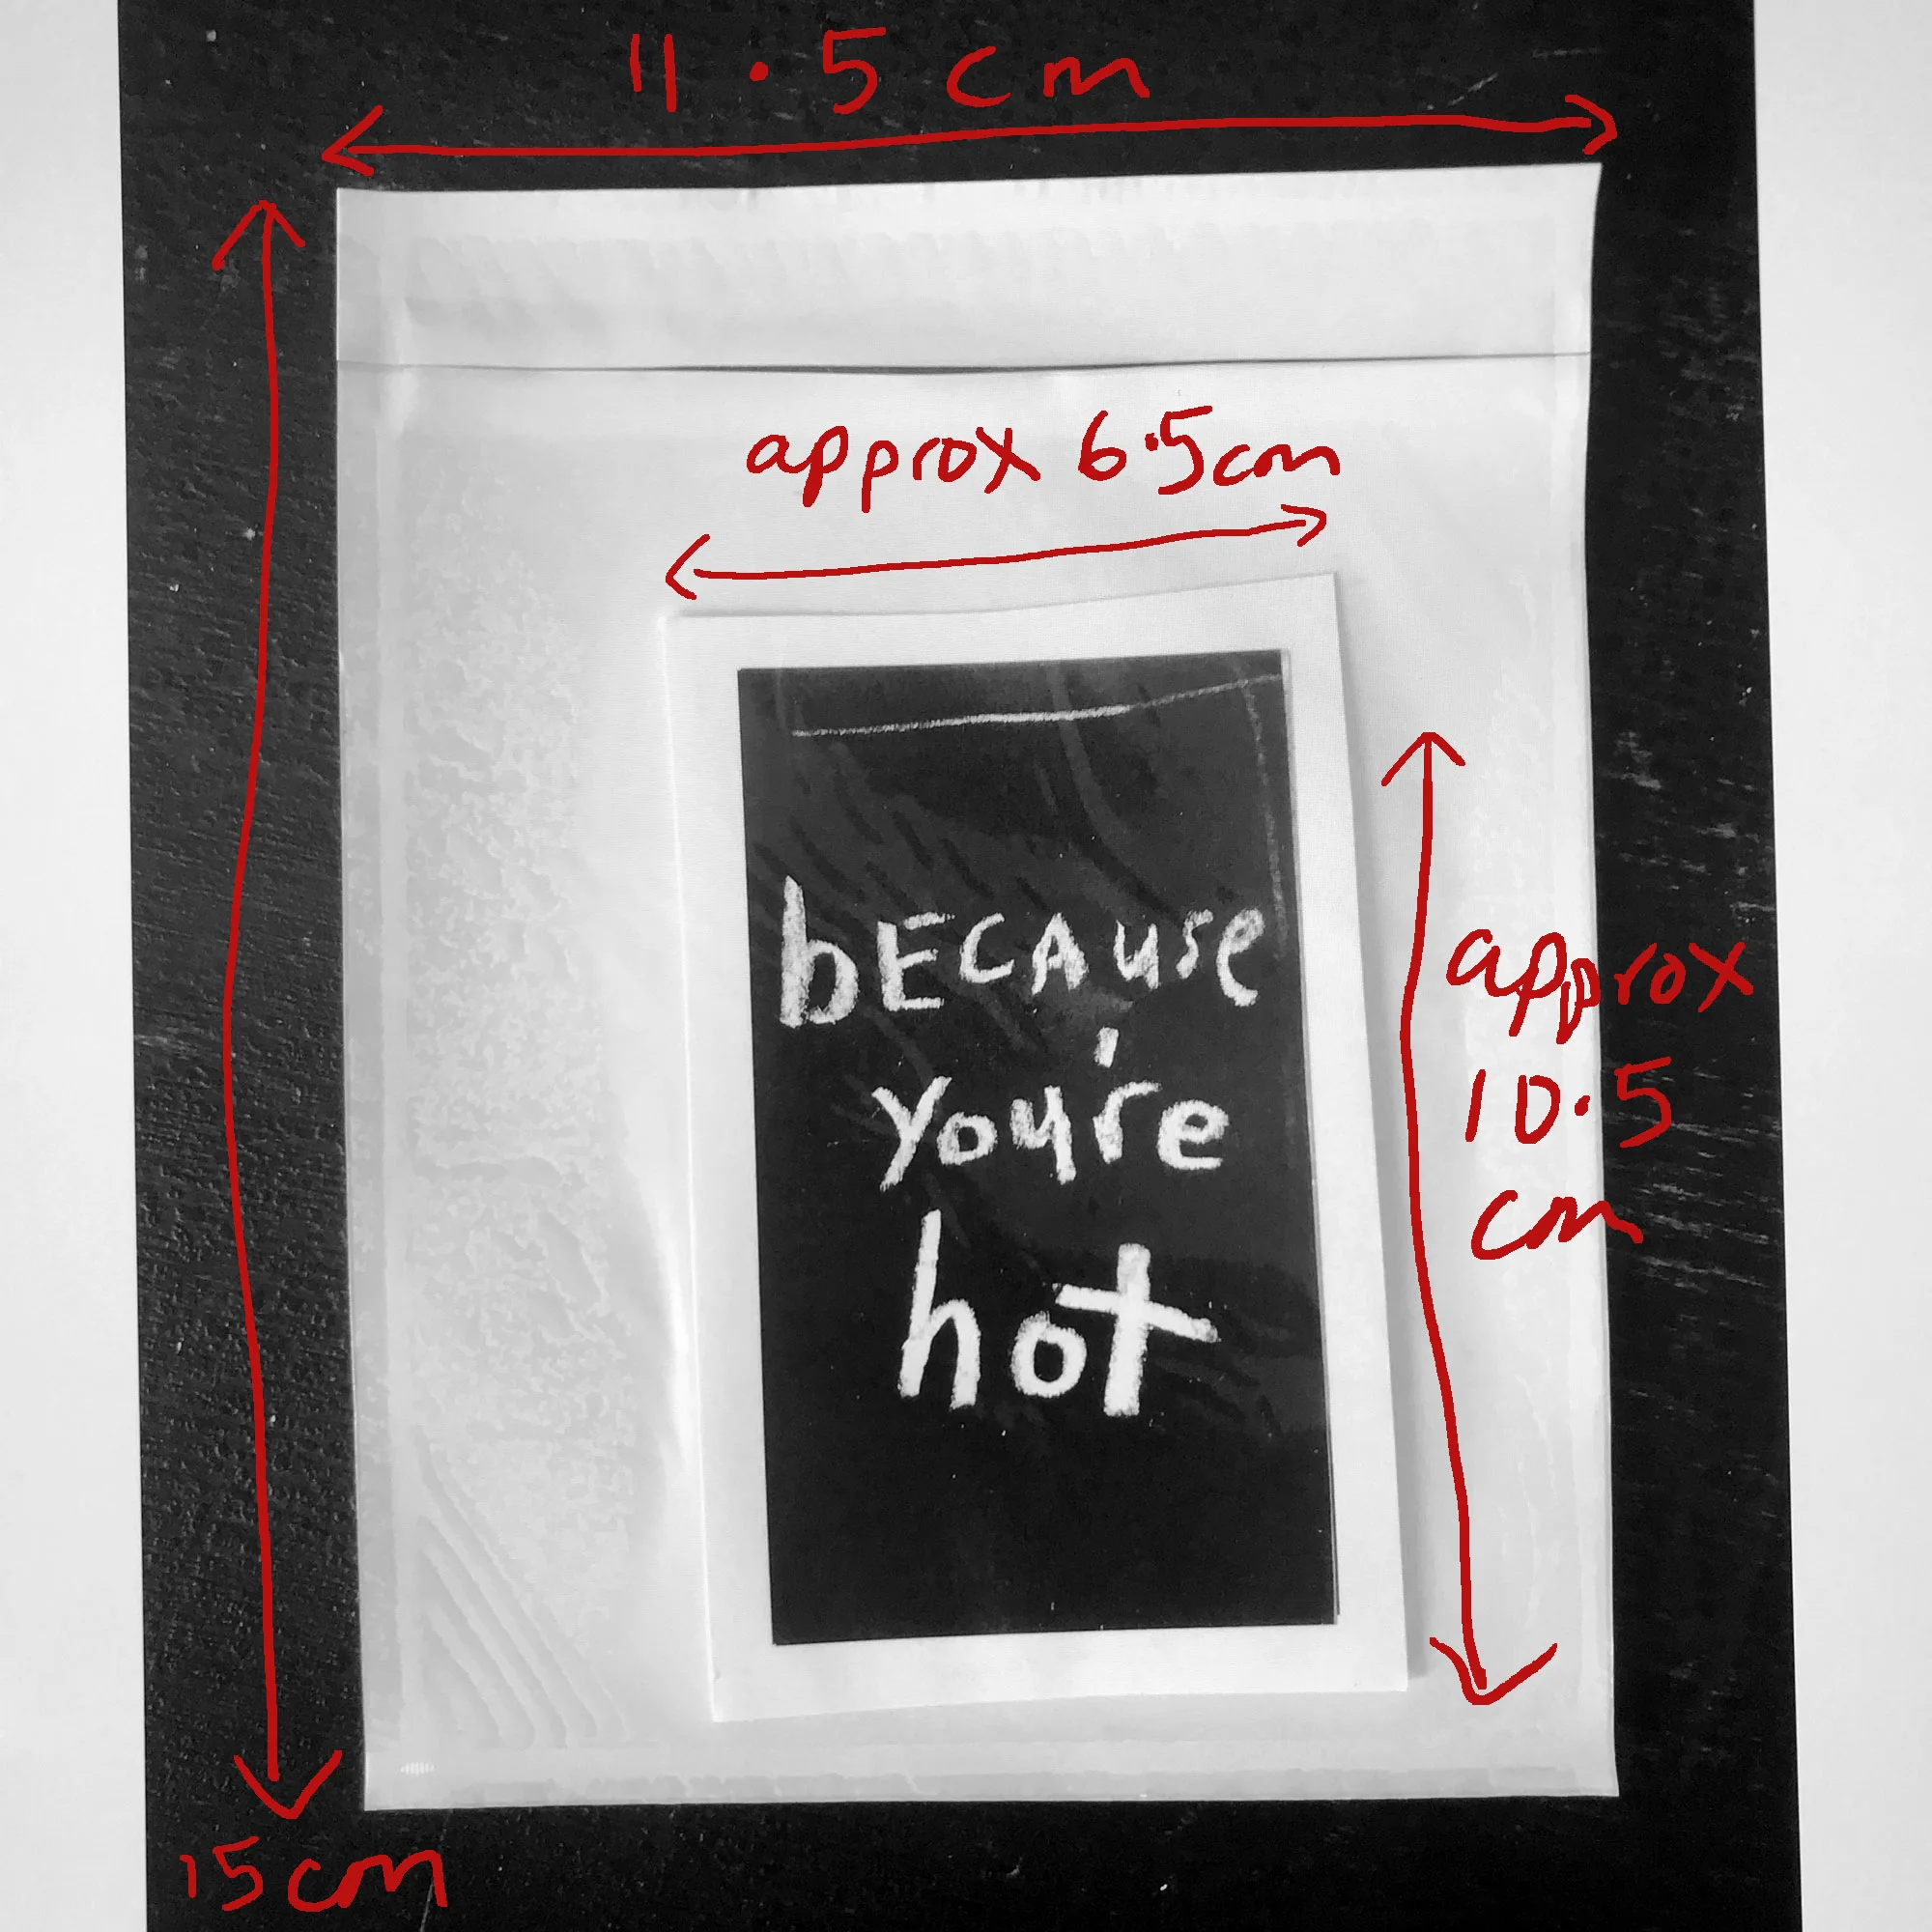 11.5cm
approx 6.5cm
bECAuse
you're
hot
approx
10.5
cm
15cm